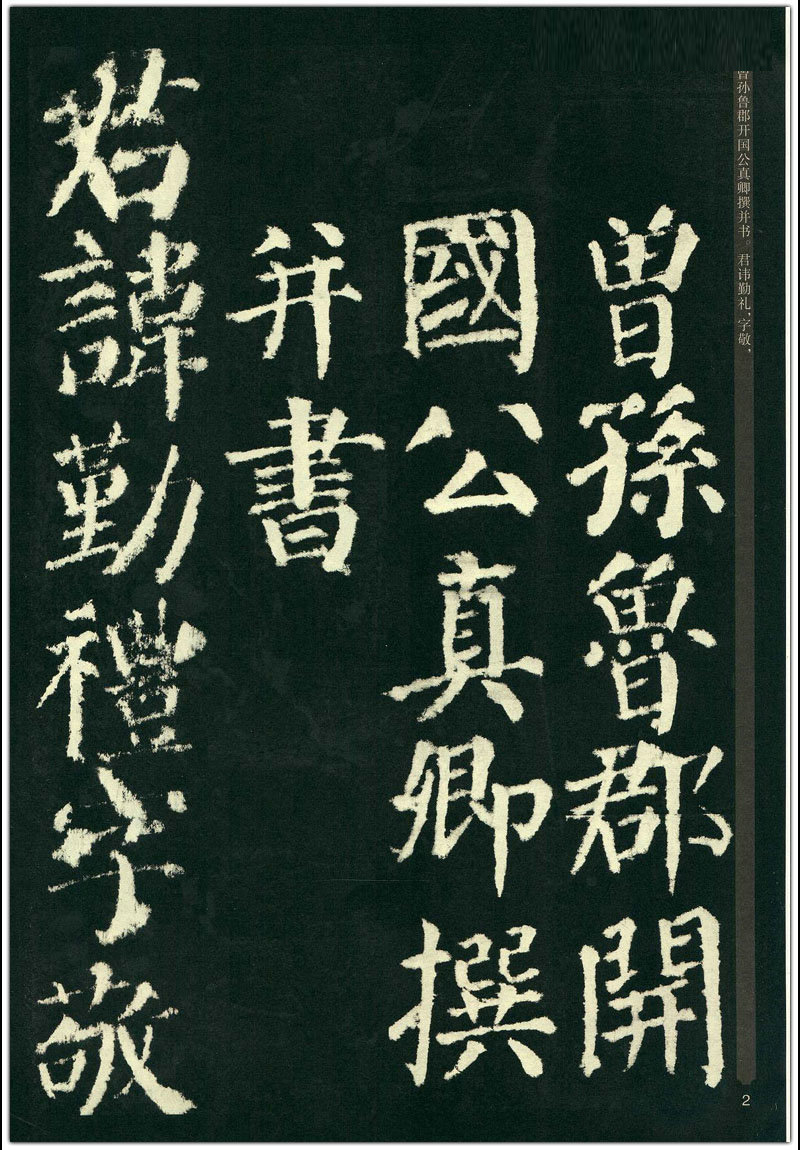 曾孙鲁郡开国公真卿撰并书。君讳勤礼，字敬，
曾孫魯郡開
國公真卿撰
并書
君諱勤禮字敬
2